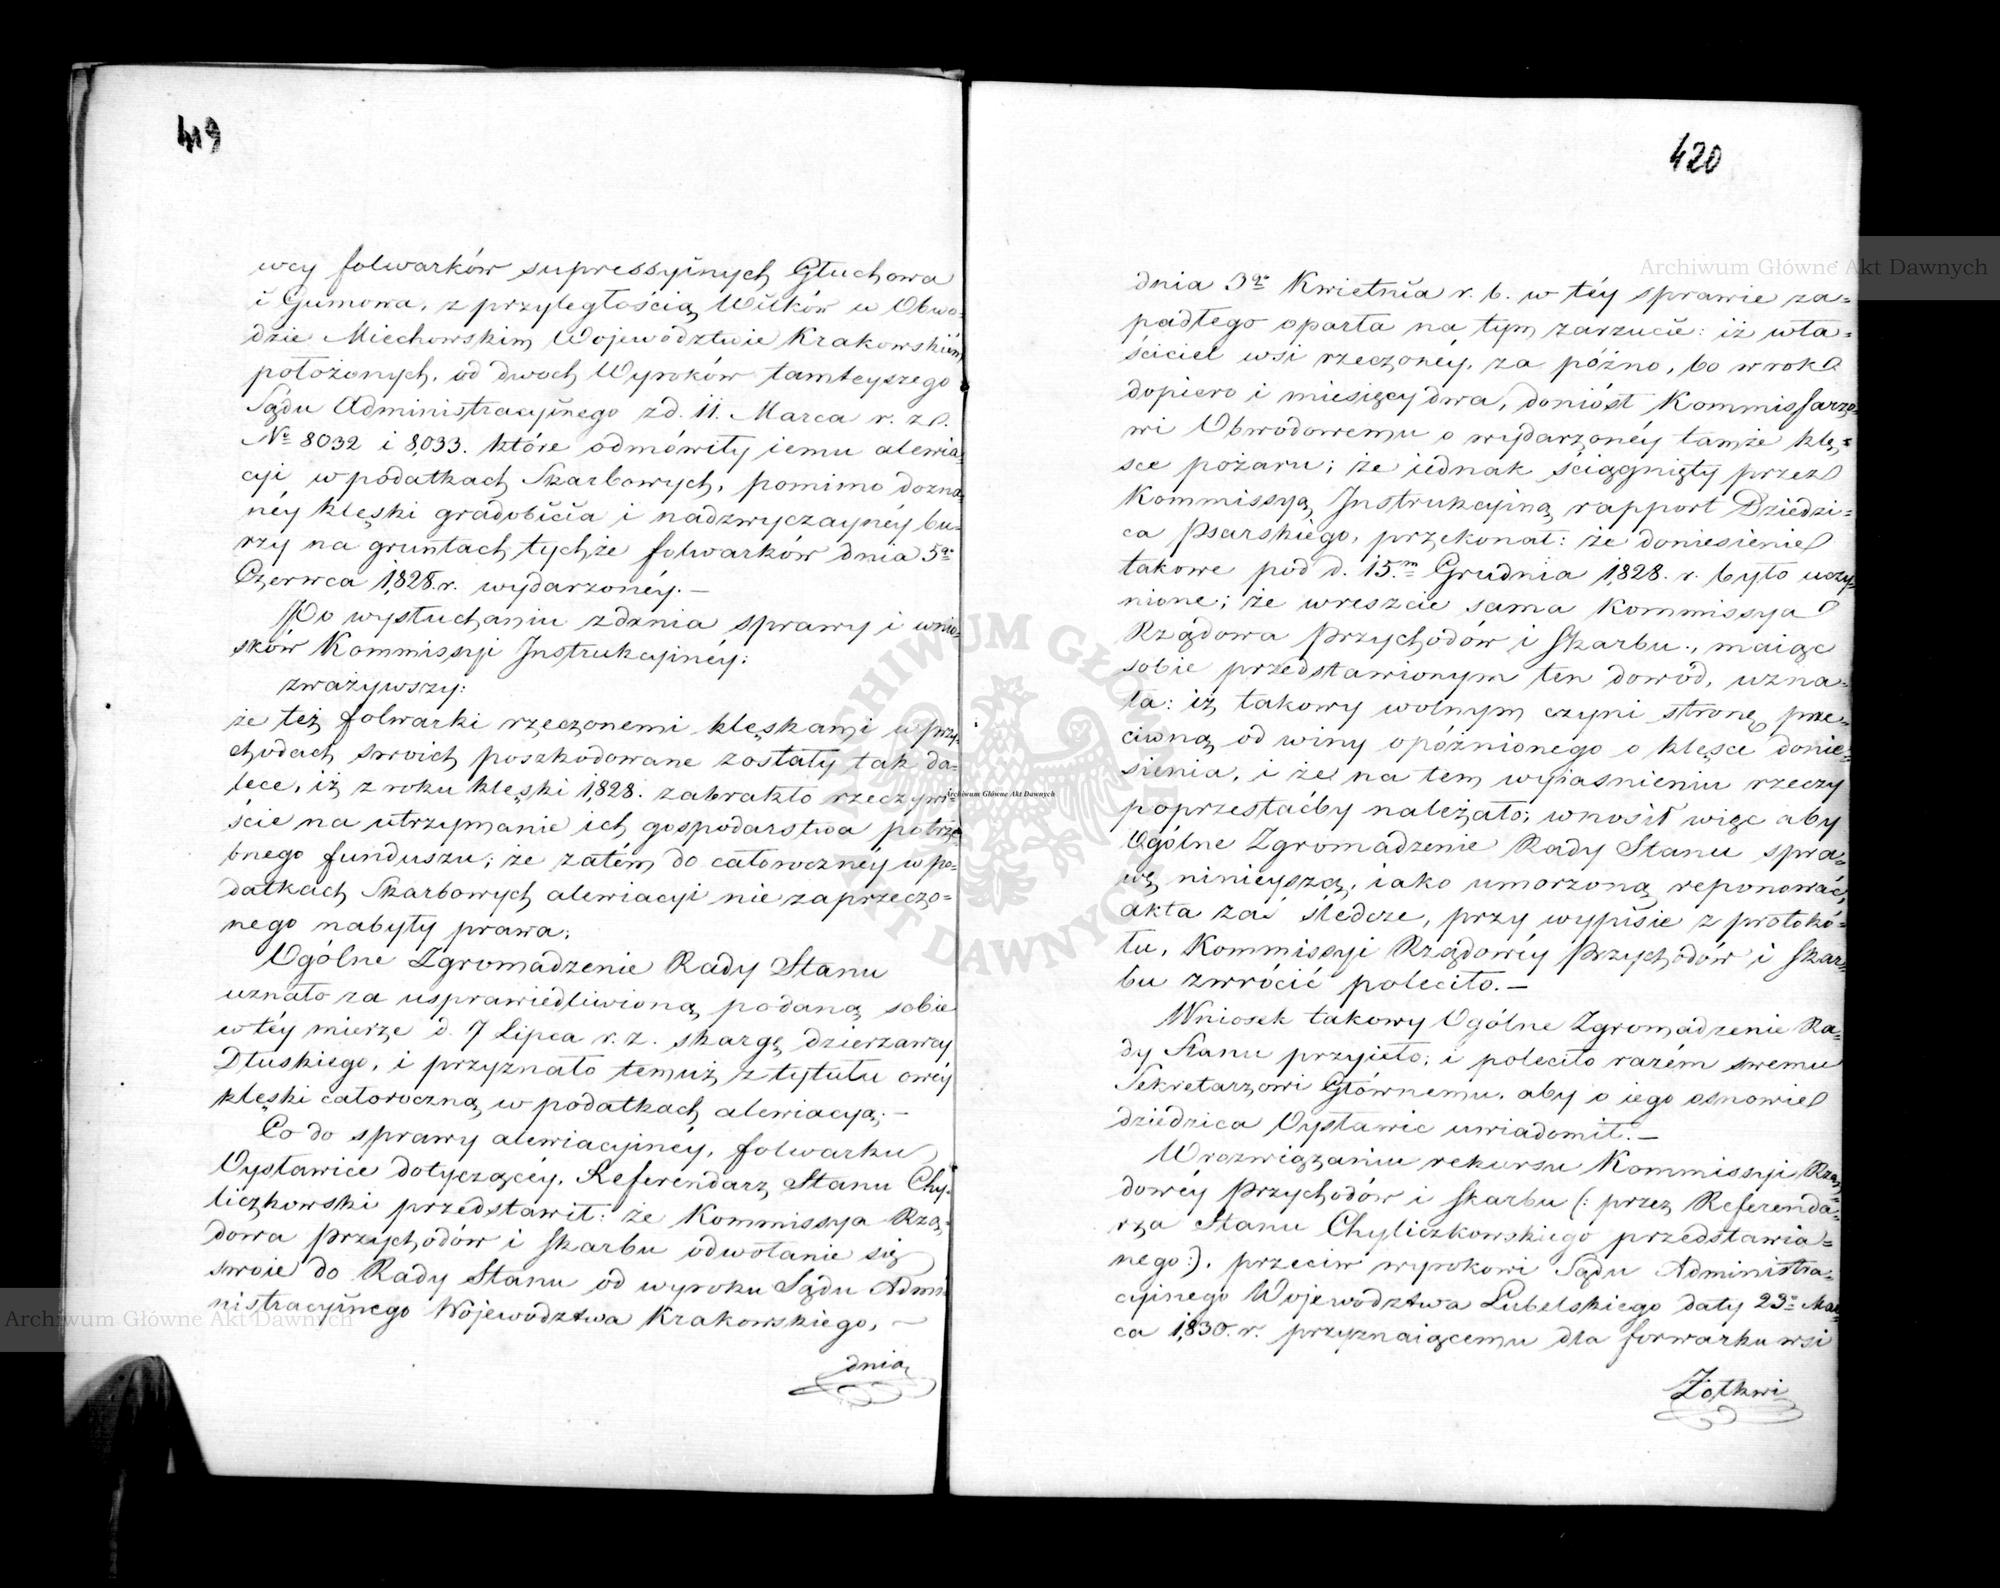 419
wcy folwarków supressyinych Głuchowa
i Gumowa, z przyległością Wilków w Obwo-
dzie Miechowskim Województwie Krakowskiém
położonych, od dwoch Wyroków tamteyszego
Sądu Administracyinego z d. 11. Marca r. z.
No 8032 i 8,033. które odmówiły iemu alewia-
cyi w podatkach Skarbowych, pomimo dozna-
néy klęski gradobicia i nadzwyczaynéy bu-
rzy na gruntach tychże folwarków dnia 5go
Czerwca 1,828. r. wydarzonéy. —
Po wysłuchaniu zdania sprawy i wnio-
sków Kommissyi Instrukcyinéy;
zważywszy:
że też folwarki rzeczonemi klęskami w przy-
chodach swoich poszkodowane zostały tak da-
lece, iż z roku klęski 1,828. zabrakło rzeczywi-
ście na utrzymanie ich gospodarstwa potrze-
bnego funduszu; że zatém do całorocznéy w po-
datkach Skarbowych alewiacyi nie zaprzeczo-
nego nabyły prawa;
Ogólne Zgromadzenie Rady Stanu
uznało za usprawiedliwioną podaną sobie
w téy mierze d. 7 Lipca r. z. skargę dzierzawcy
Dłuskiego, i przyznało temuż z tytułu owéy
klęski całoroczną w podatkach alewiacyą; —
Co do sprawy alewiacyinéy, folwarku
Wystawice dotyczącéy, Referendarz Stanu Chy-
liczkowski przedstawił: że Kommissya Rzą-
dowa Przychodów i Skarbu odwołanie się
swoie do Rady Stanu od wyroku Sądu Admi-
nistracyinego Województwa Krakowskiego, —
dnia
420
dnia 3go Kwietnia r. b. w téy sprawie za-
padłego oparła na tym zarzucie: iż wła-
ściciel wsi rzeczonéy, za późno, bo w rok
dopiero i miesięcy dwa, doniósł Kommissarzo-
wi Obwodowemu o wydarzonéy tamże klę-
sce pożaru; że iednak ściągnięty przez
Kommissyą Instrukcyiną rapport Dziedzi-
ca Psarskiégo, przekonał: że doniesienie
takowe pod d. 15.m Grudnia 1,828. r. było uczy-
nione; że wreszcie sama Kommissya
Rządowa Przychodów i Skarbu, maiąc
sobie przedstawionym ten dowód, uzna-
ła: iż takowy wolnym czyni stronę prze-
ciwną od winy opóźnionego o klęsce donie-
sienia, i że na tem wyiasnieniu rzeczy
poprzestaćby należało; wnosił więc aby
Ogólne Zgromadzenie Rady Stanu spra-
wę ninieyszą, iako umorzoną reponować,
akta zaś śledcze, przy wypisie z protokó-
łu, Kommissyi Rządowéy Przychodów i Skar-
bu zwrócić poleciło. —
Wniosek takowy Ogólne Zgromadzenie Ra-
dy Stanu przyięło; i poleciło razém swemu
Sekretarzowi Głównemu, aby o iego osnowie
dziedzica Wystawic uwiadomił. —
W rozwiązaniu rekursu Kommissyi Rzą-
dowéy Przychodów i Skarbu (: przez Referenda-
rza Stanu Chyliczkowskiego przedstawia-
nego :), przeciw wyrokowi Sądu Administra-
cyinego Województwa Lubelskiego daty 23o Mar-
ca 1,830. r. przyznaiącemu dla forwarku wsi
Żółkwi
Archiwum Główne Akt Dawnych
Archiwum Główne Akt Dawnych
Archiwum Główne Akt Dawnych
ARCHIWUM GŁÓWNE AKT DAWNYCH